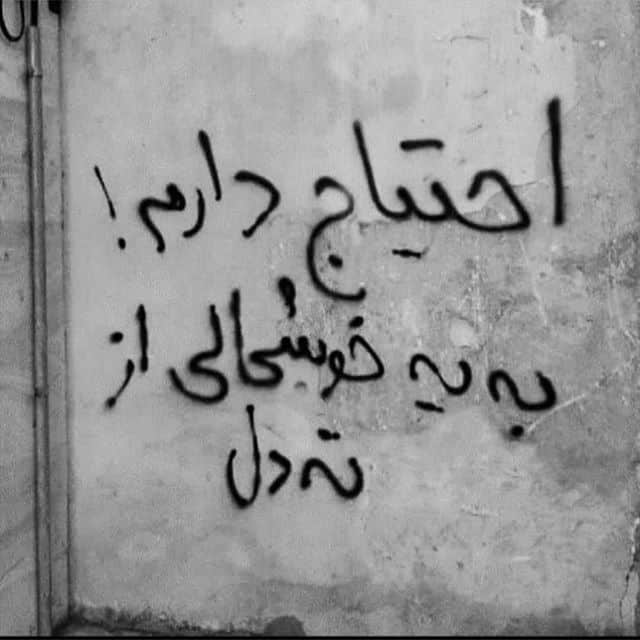 احتیاج دارم!
به یه خوشحالی از
ته دل